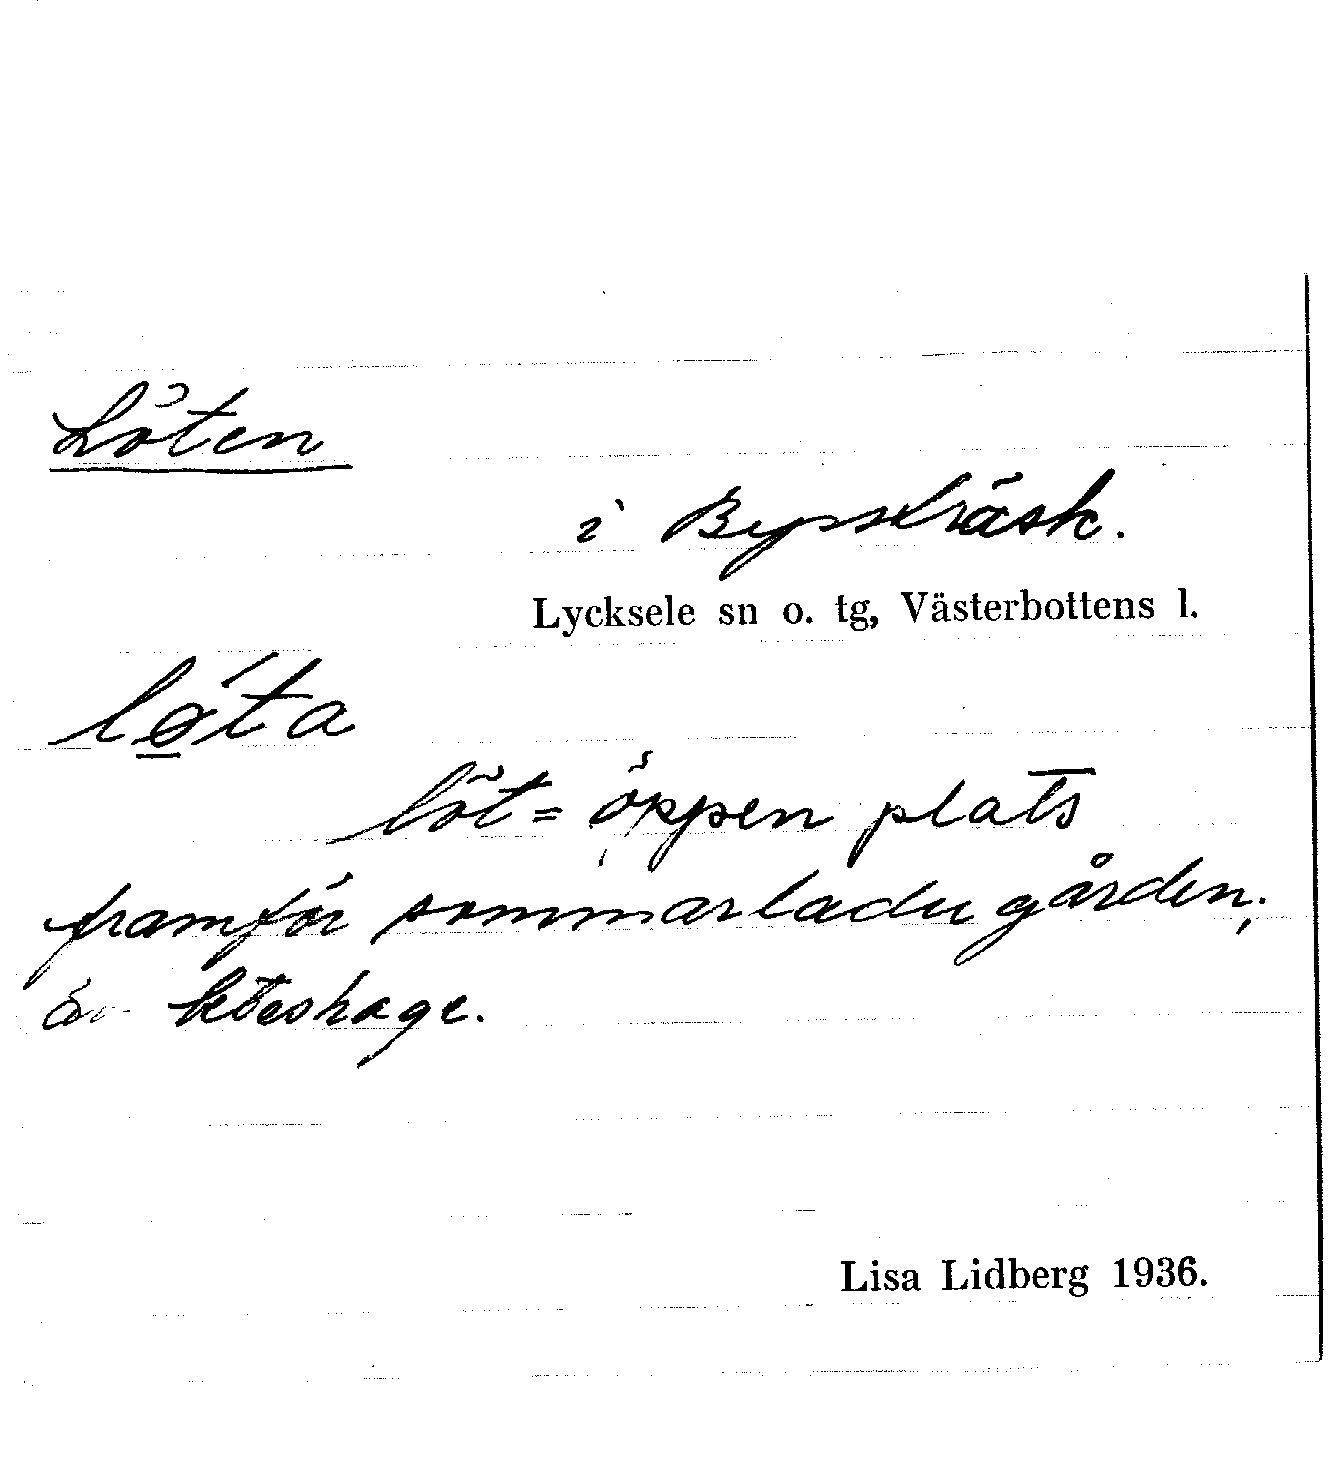 Löten
i Bysträsk.
Lycksele sn o. tg, Västerbottens l.
lǿ̲ta
löt = öppen plats
framför sommarladugården;
är beteshage.
Lisa Lidberg 1936.